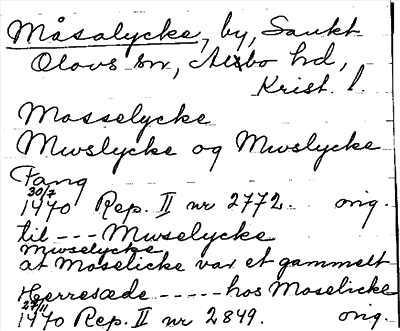 Måsalycke, by, Sankt
Olovs sn, Albo hd,
Krist. l.
Mosselycke
Mwslycke og Mwslycke
Fang
30/7
1470 Rep. II nr 2772. orig.
til --- Mwselycke
Mwselycke
at Moselicke var et gammelt
Herresæde ----- hos Moselicke
27/11
1470 Rep. II nr 2849. orig.